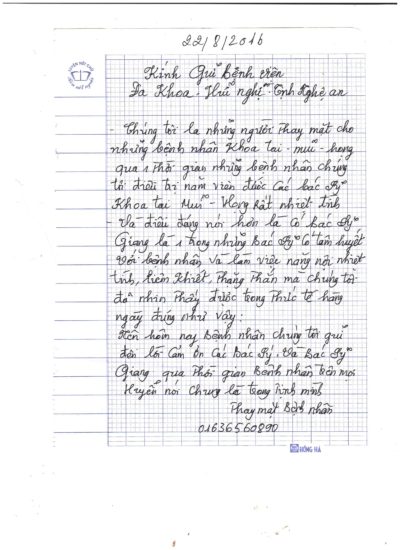 22/8/2016
Kính Gửi Bệnh viện
Đa Khoa - Hữu nghị - Tỉnh Nghệ an
- Chúng tôi là những người Thay mặt cho
những bệnh nhân Khoa tai - mũi - họng
qua 1 Thời gian những bệnh nhân chúng
tôi điều trị nằm viện được các bác sỹ
Khoa tai mũi - Họng Rất nhiệt tình
- Và điều đáng nói hơn là có bác sỹ
Giang là 1 trong những bác sỹ có tâm huyết
với bệnh nhân và làm việc năng nổi nhiệt
tình, liêm Khiết, Thẳng Thắn mà chúng tôi
đã nhìn Thấy được trong Thực tế hằng
ngày đúng như vậy:
Nên hôm nay bệnh nhân chúng tôi gửi
đến lời Cảm ơn Các bác sỹ. Và bác sỹ
Giang qua Thời gian bệnh nhân trên mọi
Huyện nói Chung là trong tỉnh mình
Thay mặt bệnh nhân
01636560890
HỒNG HÀ